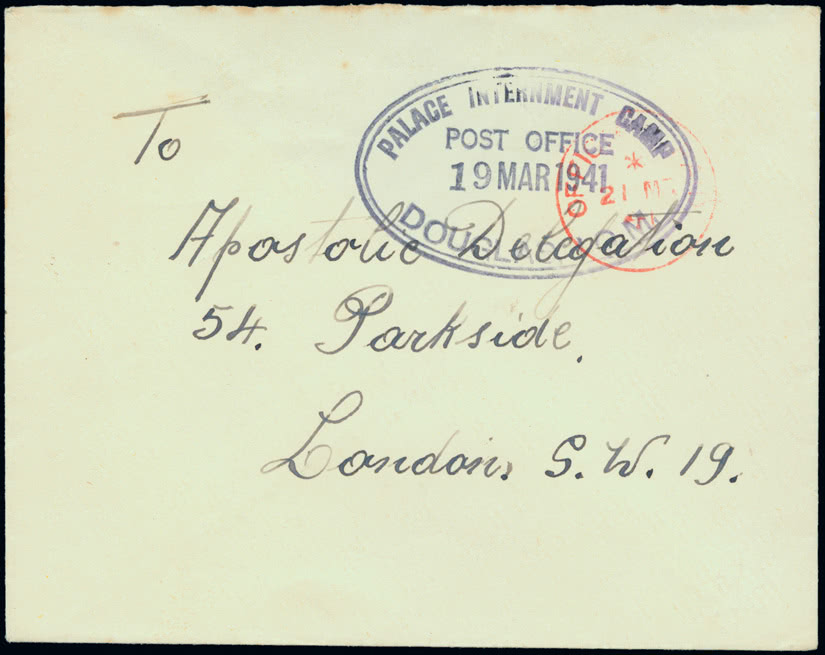 PALACE INTERNMENT CAMP
POST OFFICE
19 MAR 1941
DOUGLAS I.O.M.
OFFIC
*
21 MR
To
Apostolic Delegation
54. Parkside.
London. S.W. 19.